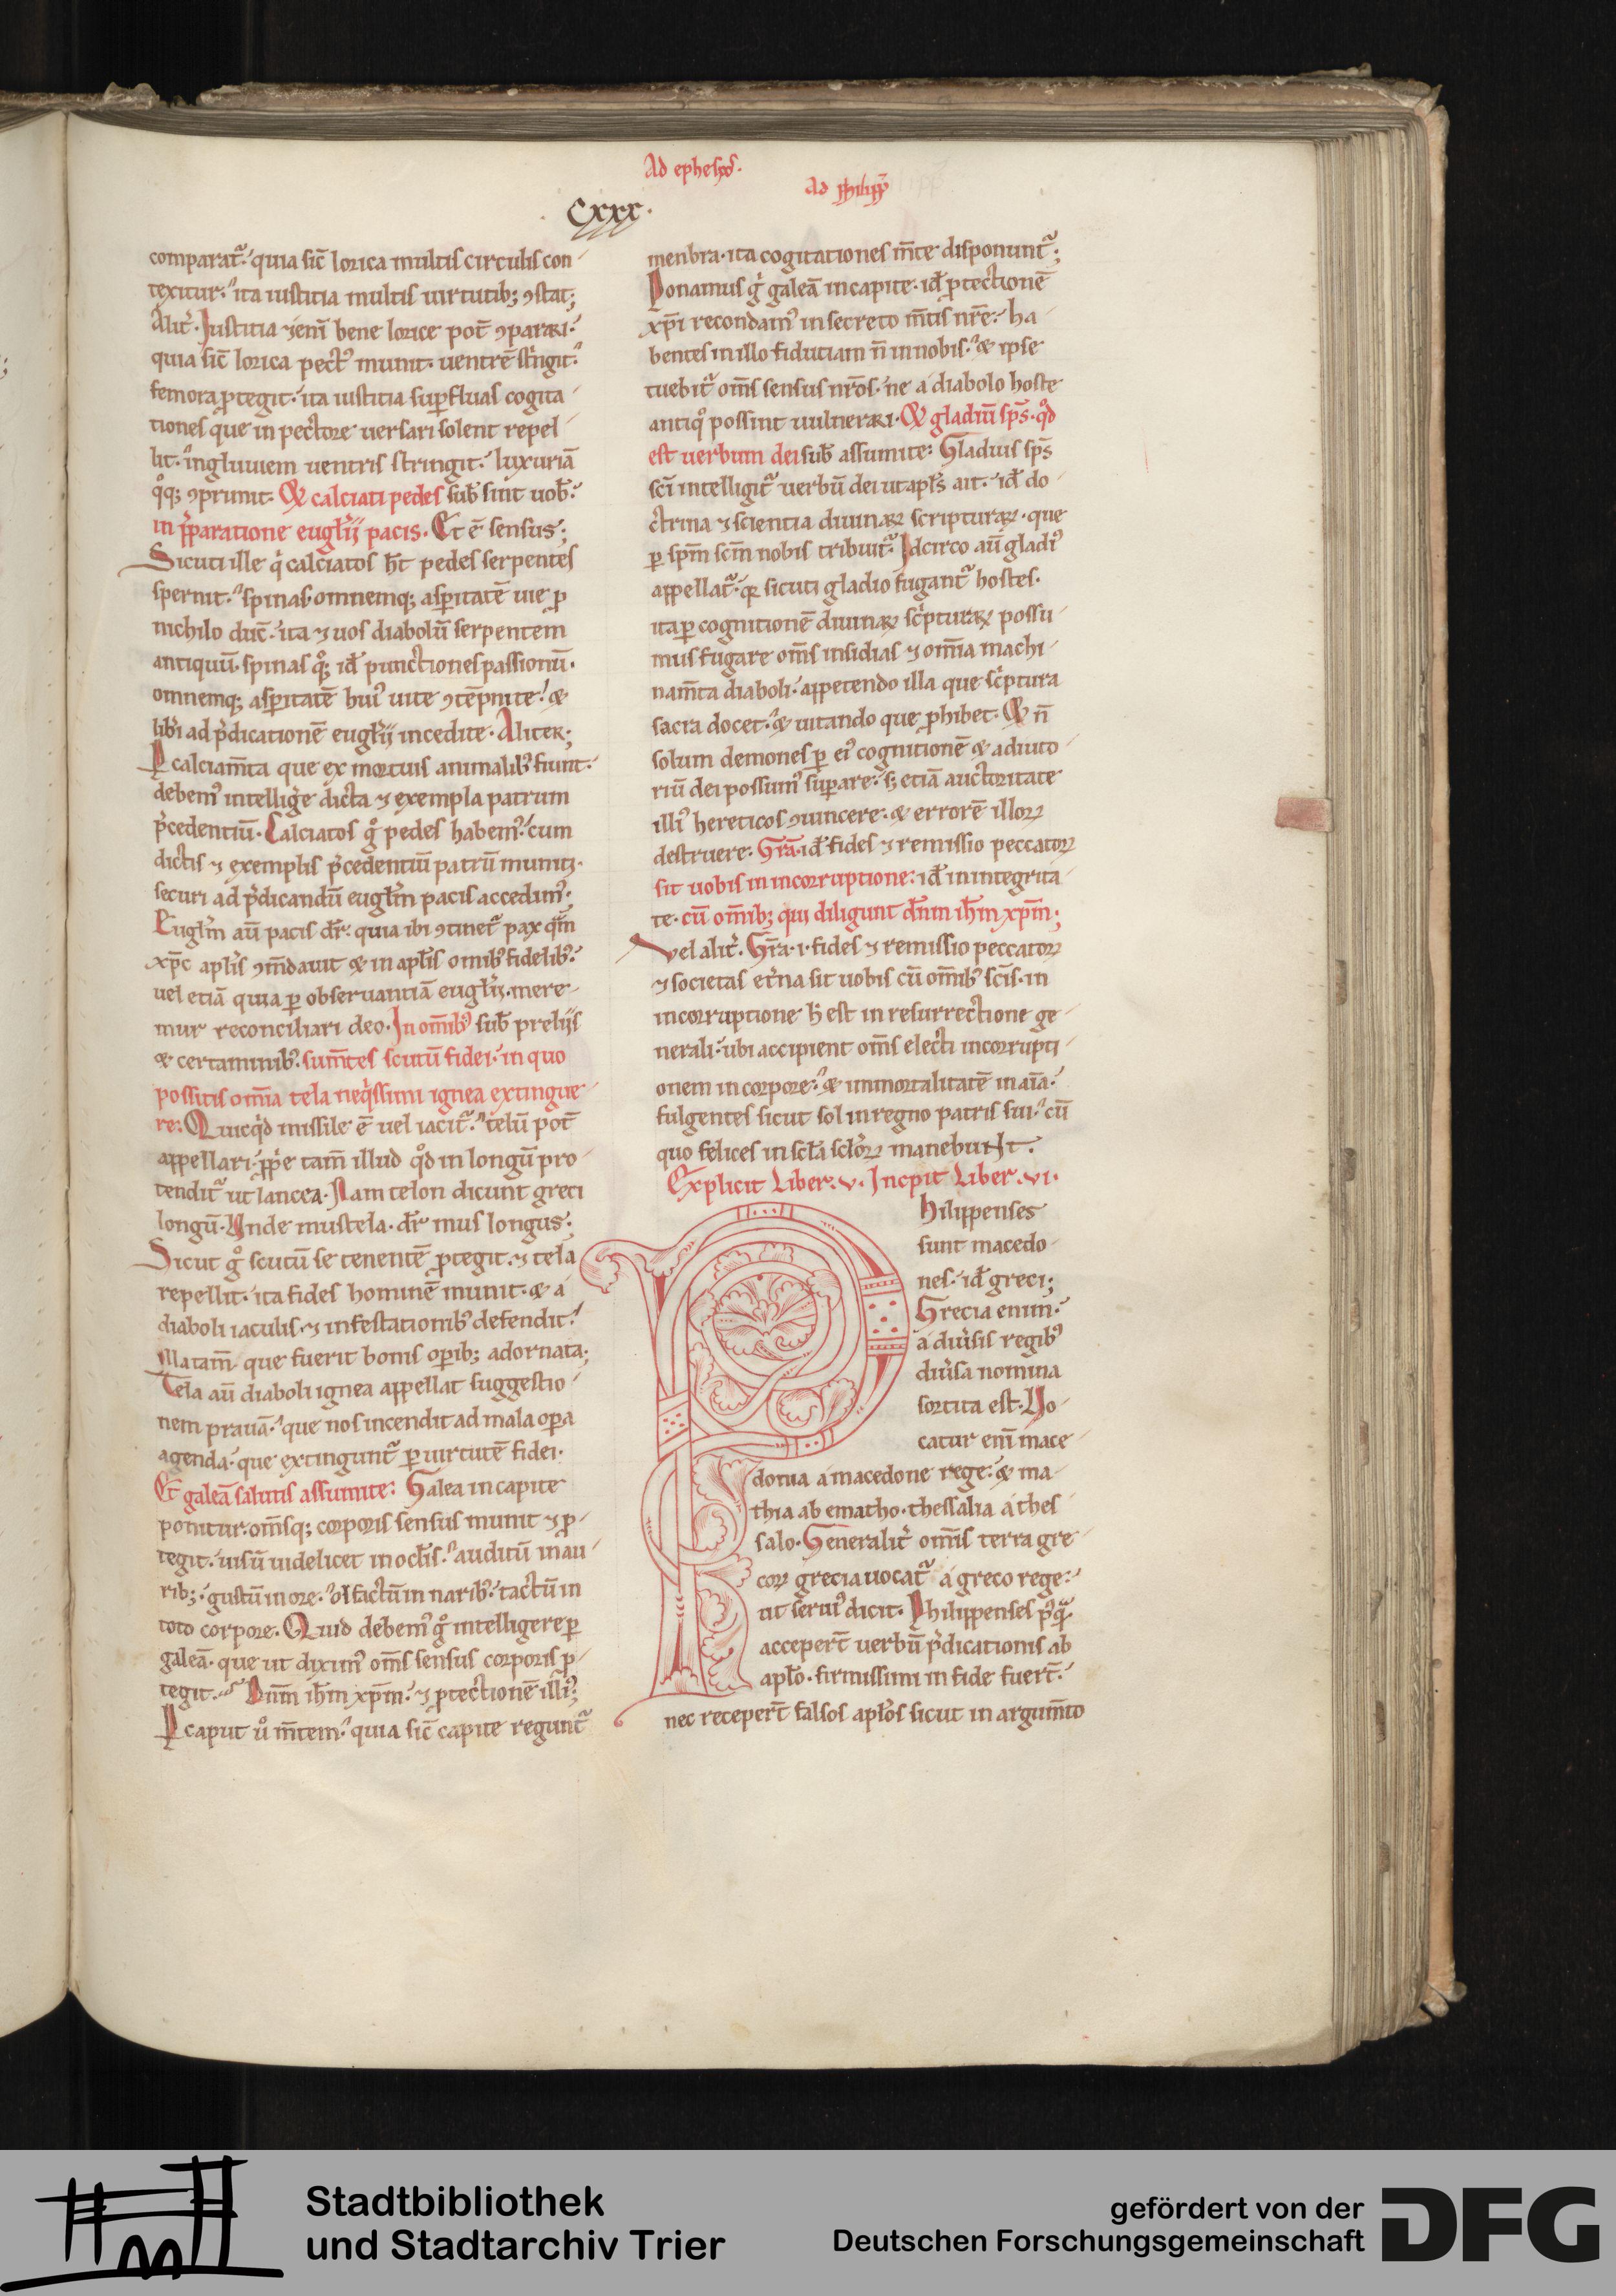 Ad ephesios.
Ad philipp̄
Cxxx.
comparat᷑. quia sic̄ lorica multis circulis con-
texitur. ita iustitia multis uirtutib; ꝯstat;
Alit᷑. Iustitia &eni bene lorice pot̄ ꝯparari.
quia sic̄ lorica pect᷒ munit. uentrē stringit.
femora ꝓtegit. ita iustitia suꝑfluas cogita-
tiones que in pectore uersari solent repel-
lit. ingluuiem uentris stringit. luxuriā
qͦq; ꝯprimit. & calciati pedes sub̄ sint uob̄.
in p̄paratione eugl̄ij pacis. Et ē sensus;
Sicuti ille qͥ calciatos h̄t pedes serpentes
spernit. spinas omnemq; asꝑitatē uie ꝓ
nichilo duc̄. ita ⁊ uos diabolū serpentem
antiquū. spinas qͦ; id̄ punctiones passionū.
omnemq; asꝑitatē hui᷒ uite ꝯtēpnite. &
lib̄i ad p̄dicationē eugl̄ij incedite. Aliter;
P calciam̄ta que ex mortuis animalib᷒ fiunt.
debem᷒ intelliḡe dicta ⁊ exempla patrum
p̄cedentiū. Calciatos gͦ pedes habem᷒. cum
dictis ⁊ exemplis p̄cedentiū patrū muniti.
securi ad p̄dicandū eugl̄m pacis accedim᷒.
Eugl̄m aū pacis dr̄. quia ibi ꝯtinet᷑ pax qām
xp̄c apl̄is ꝯm̄dauit & in apl̄is omib᷒ fidelib᷒.
uel etiā quia ꝑ obseruantiā eugl̄ij. mere-
mur reconciliari deo. In om̄ib᷒ sub̄ prelijs
& certaminib᷒. sum̄tes scutū fidei. in quo
possitis om̄ia tela neqͥssimi ignea extingue-
re: Quicqͥd missile ē uel iacit᷑. telū pot̄
appellari. ꝓprie tam̄ illud qͦd in longū pro-
tendit᷑ ut lancea. Nam telon dicunt greci
longū. Unde mustela. dr̄ mus longus;
Sicut gͦ scutū se tenentē ꝓtegit. ⁊ tela
repellit. ita fides hominē munit. & a
diaboli iaculis. ⁊ infestationib᷒ defendit.
Si tam̄ que fuerit bonis oꝑib; adornata;
Tela aū diaboli ignea appellat suggestio-
nem prauā. que nos incendit ad mala oꝑa
agenda. que extingunt᷑ ꝑ uirtutē fidei.
Et galeā salutis assumite: Galea in capite
ponitur. om̄sq; corporis sensus munit ⁊ ꝓ-
tegit. uisū uidelicet in ocl̄is. auditū in au-
rib;. gustū in ore. olfactū in narib᷒. tactū in
toto corpore. Quid debem᷒ gͦ intelligere ꝑ
galeā. que ut dixim᷒ om̄s sensus corporis ꝓ-
tegit. Dnm̄ ih̄m xp̄m. ⁊ ꝓtectionē illi᷒;
P caput uͦ m̄tem. quia sic̄ capite regunt᷑
menbra. ita cogitationes m̄te disponunt᷑;
Ponamus gͦ galeā in capite. id̄ ꝓtectionē
xp̄i recondam᷒ in secreto m̄tis nr̄e. ha-
bentes in illo fiduciam n̄ in nobis. & ipse
tuebit᷑ om̄s sensus nr̄os. ne a diabolo hoste
antiqͦ possint uulnerari. & gladiū sp̄s. qͦd
est uerbum dei sub̄ assumite: Gladius sp̄s
sc̄i intelligit᷑ uerbū dei ut apl̄s ait. id̄ do-
ctrina ⁊ scientia diuinaꝝ scripturaꝝ. que
ꝑ sp̄m sc̄m nobis tribuit᷑. Idcirco aū gladi᷒
appellat᷑. qꝛ sicuti gladio fugant᷑ hostes.
ita ꝑ cognitionē diuinaꝝ scͥpturaꝝ possu-
mus fugare om̄s insidias ⁊ om̄ia machi-
nam̄ta diaboli. appetendo illa que scͥptura
sacra docet. & uitando que ꝓhibet. & n̄
solum demones ꝑ ei᷒ cognitionē & adiuto-
riū dei possum᷒ suꝑare. s; etiā auctoritate
illi᷒ hereticos ꝯuincere. & errorē illoꝝ
destruere. Gr̄a. id̄ fides ⁊ remissio peccatoꝝ
sit uobis in incorruptione: id̄ in integrita-
te. cū om̄ib; qui diligunt dn̄m ih̄m xp̄m;
Vel alit᷑. Gr̄a. i. fides ⁊ remissio peccatoꝝ
⁊ societas et̄na sit uobis cū om̄ib᷒ sc̄is. in
incorruptione h̄ est in resurrectione ge-
nerali. ubi accipient om̄s electi incorrupti-
onem in corpore. & inmortalitatē in aīa.
fulgentes sicut sol in regno patris sui. cū
quo felices in scl̄a scl̄oꝝ manebunt.
Explicit Liber. v. Incpit Liber. vi.
Philippenses
sunt macedo-
nes. id̄ greci;
Grecia enim.
a diu̾sis regib᷒
diu̾sa nomina
sortita est. Uo-
catur eni mace-
donia a macedone rege. & ma-
thia ab ematho. thessalia a thes-
salo. Generalit᷑ om̄is terra gre-
coꝝ grecia uocat᷑ a greco rege.
ut serui᷒ dicit. Philippenses pͦqᷓ
accepert̄ uerbū p̄dicationis ab
apl̄o. firmissimi in fide fuert̄.
nec recepert̄ falsos apl̄os sicut in argum̄to
Stadtbibliothek
und Stadtarchiv Trier
gefördert von der
Deutschen Forschungsgemeinschaft
DFG